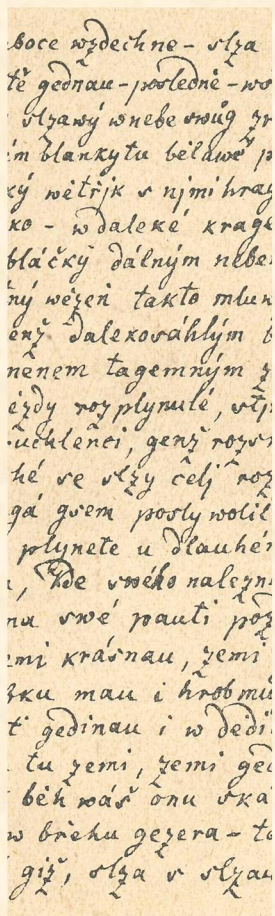 boce wzdechne – slza
tě gednau – posledně – wo
slzawý w nebe swůg zr
ém blankytu bělawé p
ký wětřjk s njmi hrag
ko – w daleké krage
bláčky dálným nebe
ný wězeň takto mluw
enž dalekosáhlým
něnem tagemným z
ězdy rozplynulé, stj
uchlenci, genž rozsm
hé se slzy čelj roz
gá gsem posly wolil
plynete u dlauhém
, kde swého nalezn
na swé pauti poz
emi krásnau, zemi
žku mau i hrob mů
t gedinau i w dědi
tu zemi, zemi ged
běh wáš onu ská
w břehu gezera – ta
giž, slza s slzau